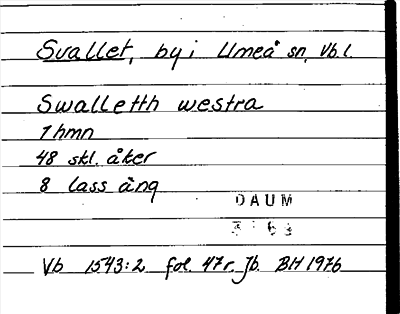 Svallet, by i Umeå sn, Vb.l.
Swalletth westra
1 hmn
48 skl. åker
8 lass äng
DAUM
Vb 1543:2 fol. 47r. Jb. BH 1976